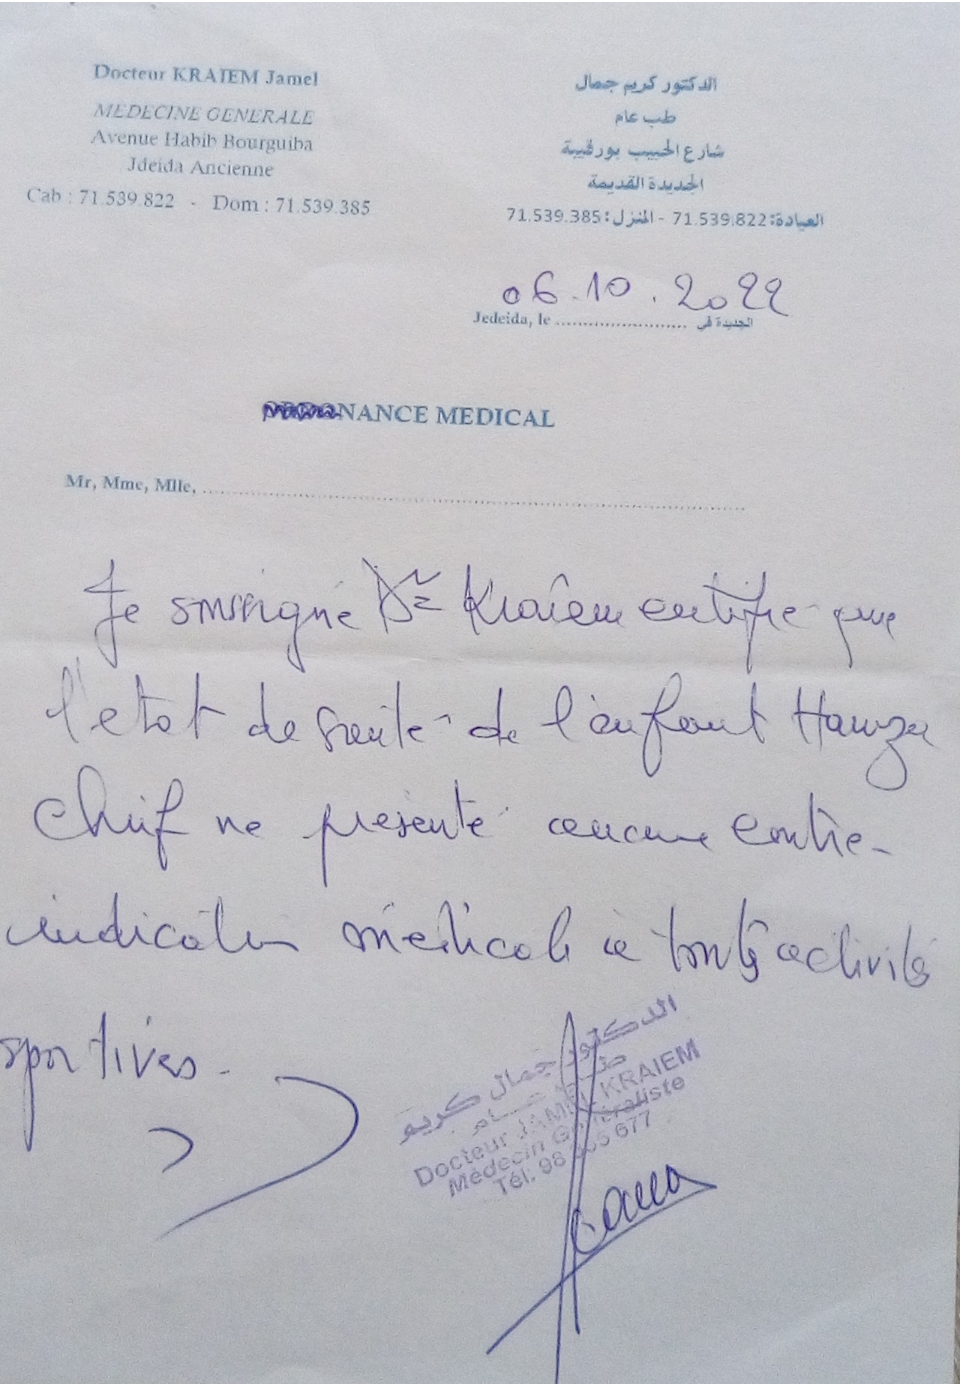 Docteur KRAIEM Jamel
MEDECINE GENERALE
Avenue Habib Bourguiba
Jdeida Ancienne
Cab : 71.539.822 - Dom : 71.539.385
الدكتور كريم جمال
طب عام
شارع الحبيب بورقيبة
الجديدة القديمة
العيادة: 71.539.822 - المنزل: 71.539.385
06.10.2022
Jedeida, le ........................ الجديدة في
NANCE MEDICAL
Mr, Mme, Mlle, ........................................................................
Je soussigné Dr Kraïem certifie que
l'etat de santé de l'enfant Hamza
ne présente aucune contre-
indication médicale à toutes activités
sportives.
الدكتور جمال كريم
طب عام
Docteur JAMEL KRAIEM
Médecin Généraliste
Tél: 98 677